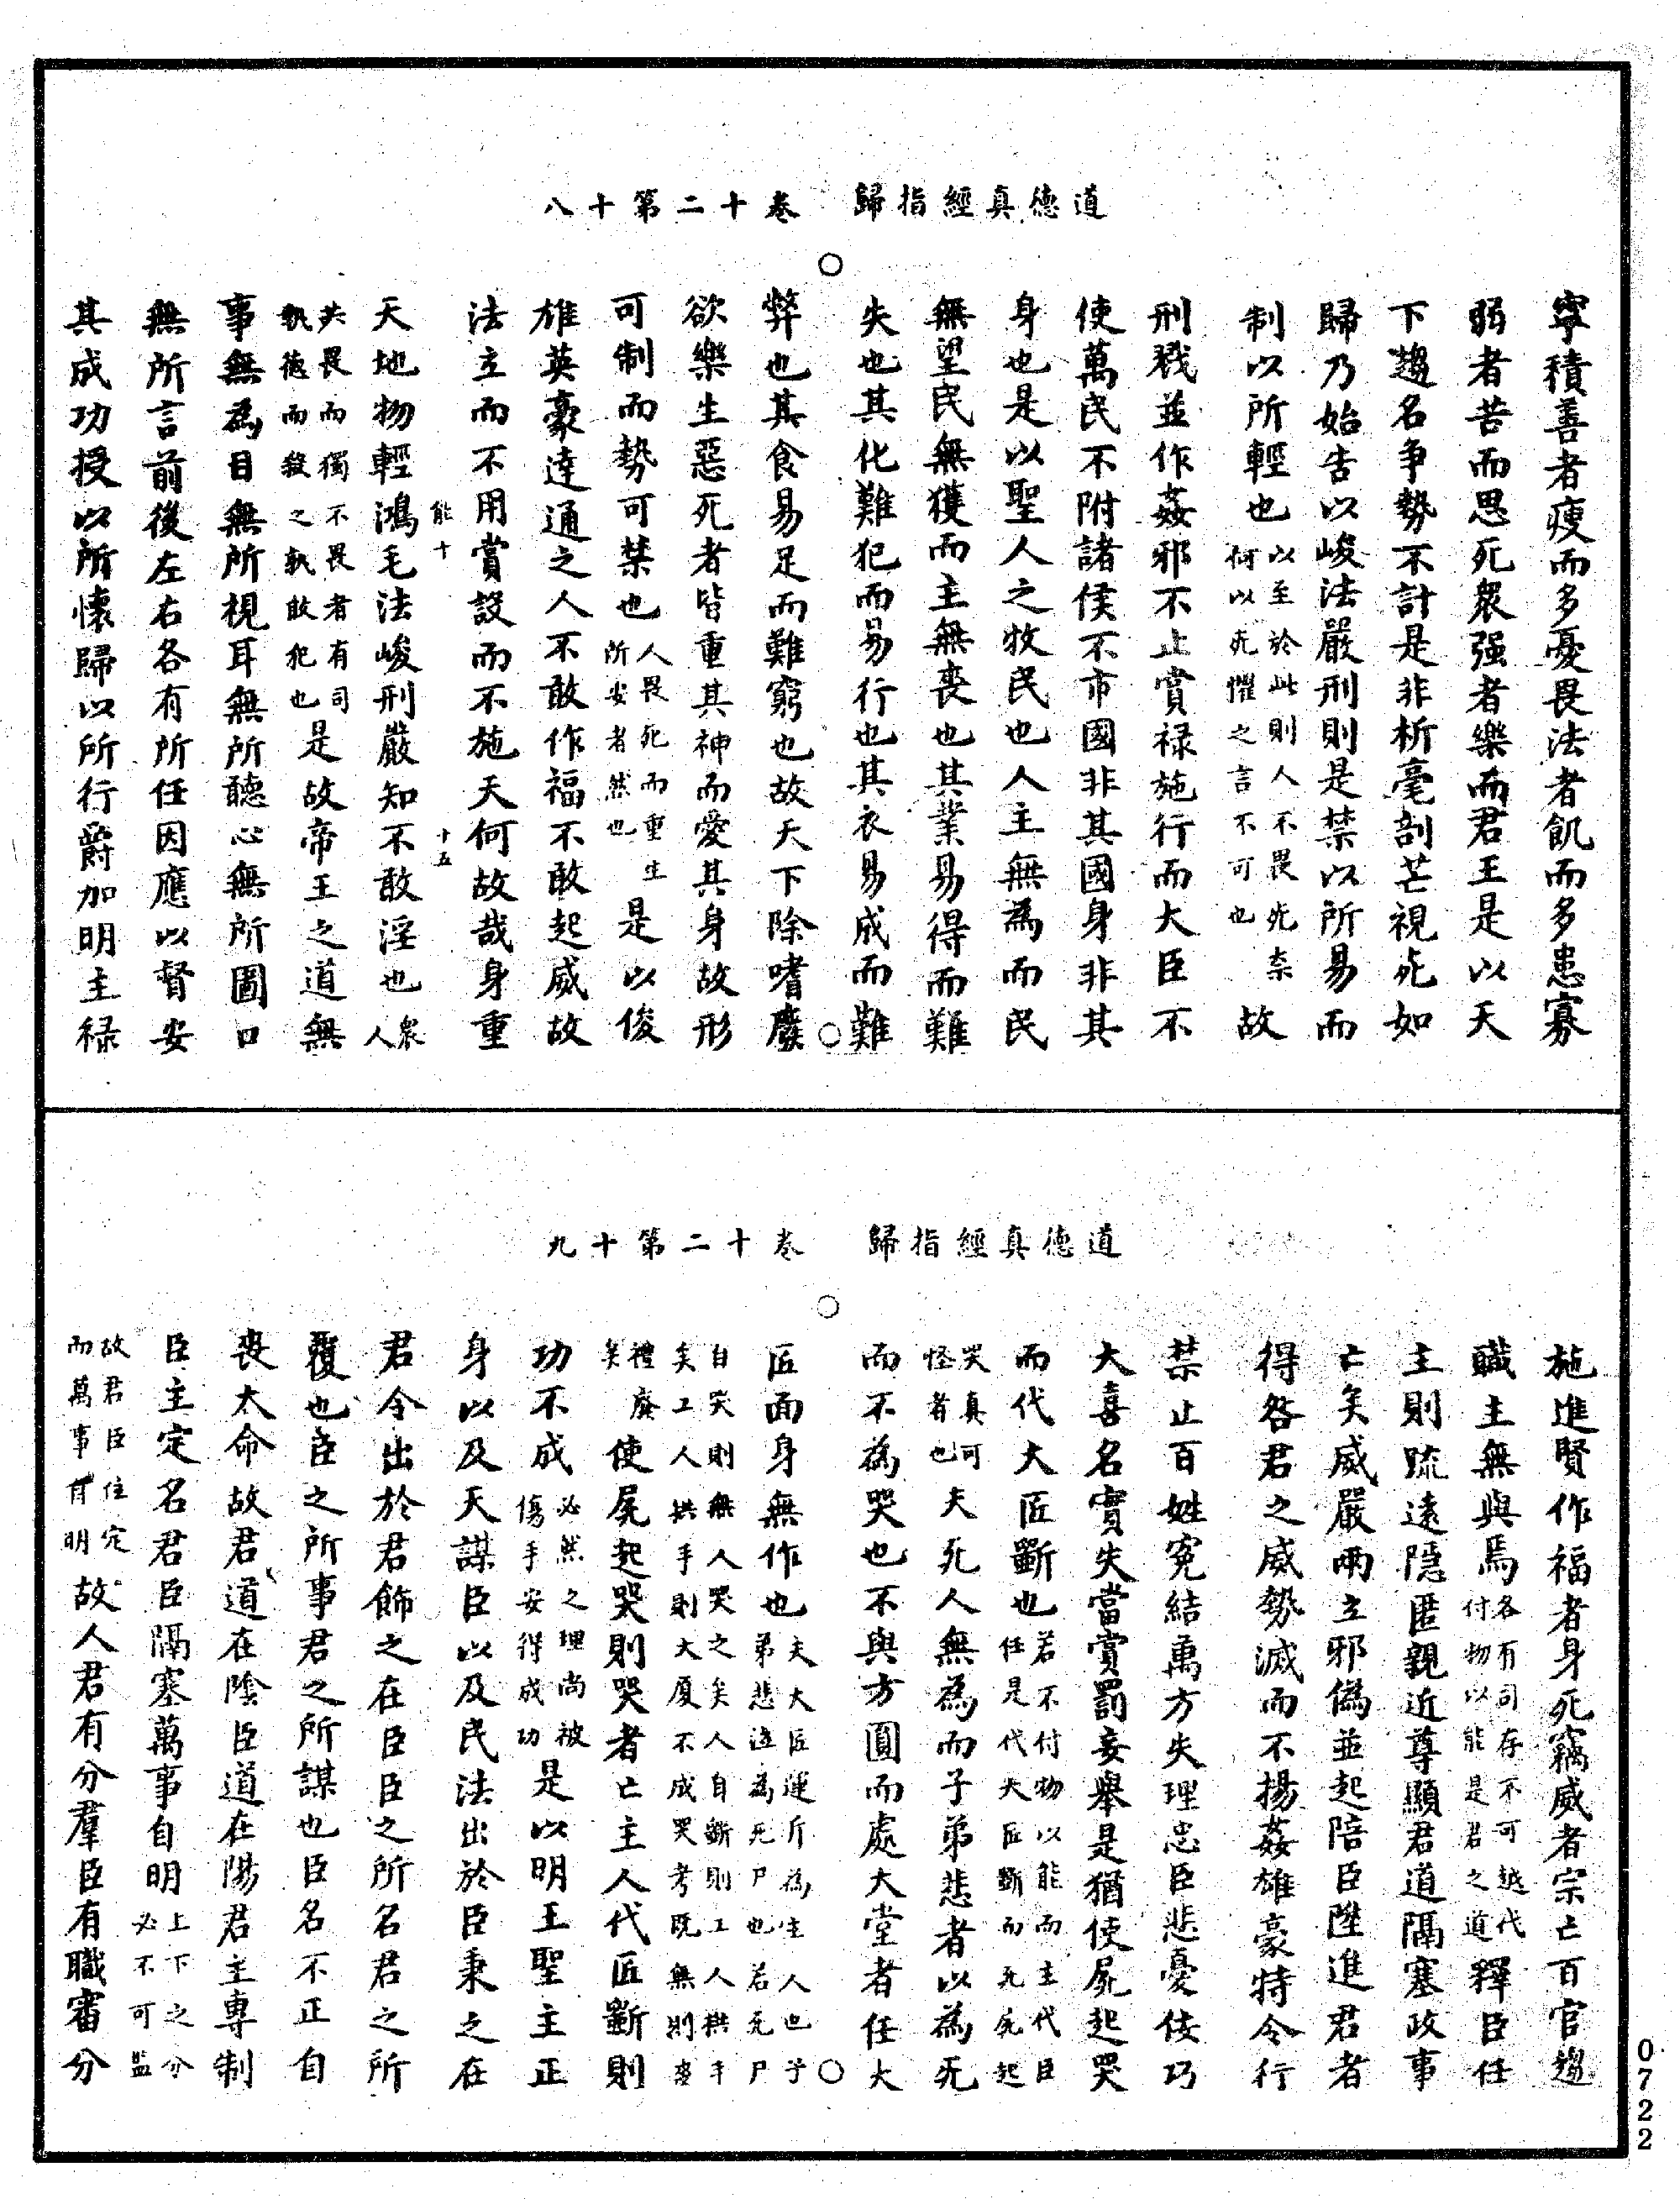 道德真經指歸　卷十二第十八
寧積善者瘦而多憂畏法者飢而多患寡
弱者苦而思死衆强者樂而君王是以天
下趨名争勢不計是非析毫剖芒視死如
歸乃始告以峻法嚴刑則是禁以所易而
制以所輕也以至於此則人不畏死柰何以死懼之言不可也故
刑戮並作姦邪不止賞禄施行而大臣不
使萬民不附諸侯不市國非其國身非其
身也是以聖人之牧民也人主無為而民
無望民無獲而主無喪也其業易得而難
失也其化難犯而易行也其衣易成而難
弊也其食易足而難窮也故天下除嗜廢
欲樂生惡死者皆重其神而愛其身故形
可制而勢可禁也人畏死而重生所安者然也是以俊
雄英豪達通之人不敢作福不敢起威故
法立而不用賞設而不施天何故哉身重
能十　十五
天地物輕鴻毛法峻刑嚴知不敢淫也衆人
共畏而獨不畏者有司執德而殺之孰敢犯也是故帝王之道無
事無為目無所視耳無所聽心無所圖口
無所言前後左右各有所任因應以督安
其成功授以所懷歸以所行爵加明主禄
道德真經指歸　卷十二第十九
施進賢作福者身死竊威者宗亡百官趨
職主無與焉各有司存不可越代付物以能是君之道釋臣任
主則疏遠隱匿親近尊顯君道隔塞政事
亡矣威嚴兩立邪僞並起陪臣陞進君者
得咎君之威勢滅而不揚姦雄豪特令行
禁止百姓寃結萬方失理忠臣悲憂佞巧
大喜名實失當賞罰妄舉是猶使屍起哭
而代大匠斲也若不付物以能而主代臣任是代大匠斲而死屍起
哭真可怪者也夫死人無為而子弟悲者以為死
而不為哭也不與方圓而處大堂者任大
匠而身無作也夫大匠運斤為主人也子弟悲泣為死尸也若死尸
自哭則無人哭之矣人自斲則工人拱手矣工人拱手則大厦不成哭考既無則喪
禮廢矣使屍起哭則哭者亡主人代匠斲則
功不成必然之理尚被傷手安得成功是以明王聖主正
身以及天謀臣以及民法出於臣秉之在
君令出於君飾之在臣臣之所名君之所
覆也臣之所事君之所謀也臣名不正自
喪太命故君道在陰臣道在陽君主專制
臣主定名君臣隔塞萬事自明上下之分必不可監
故君臣位定而萬事有明故人君有分羣臣有職審分
0722